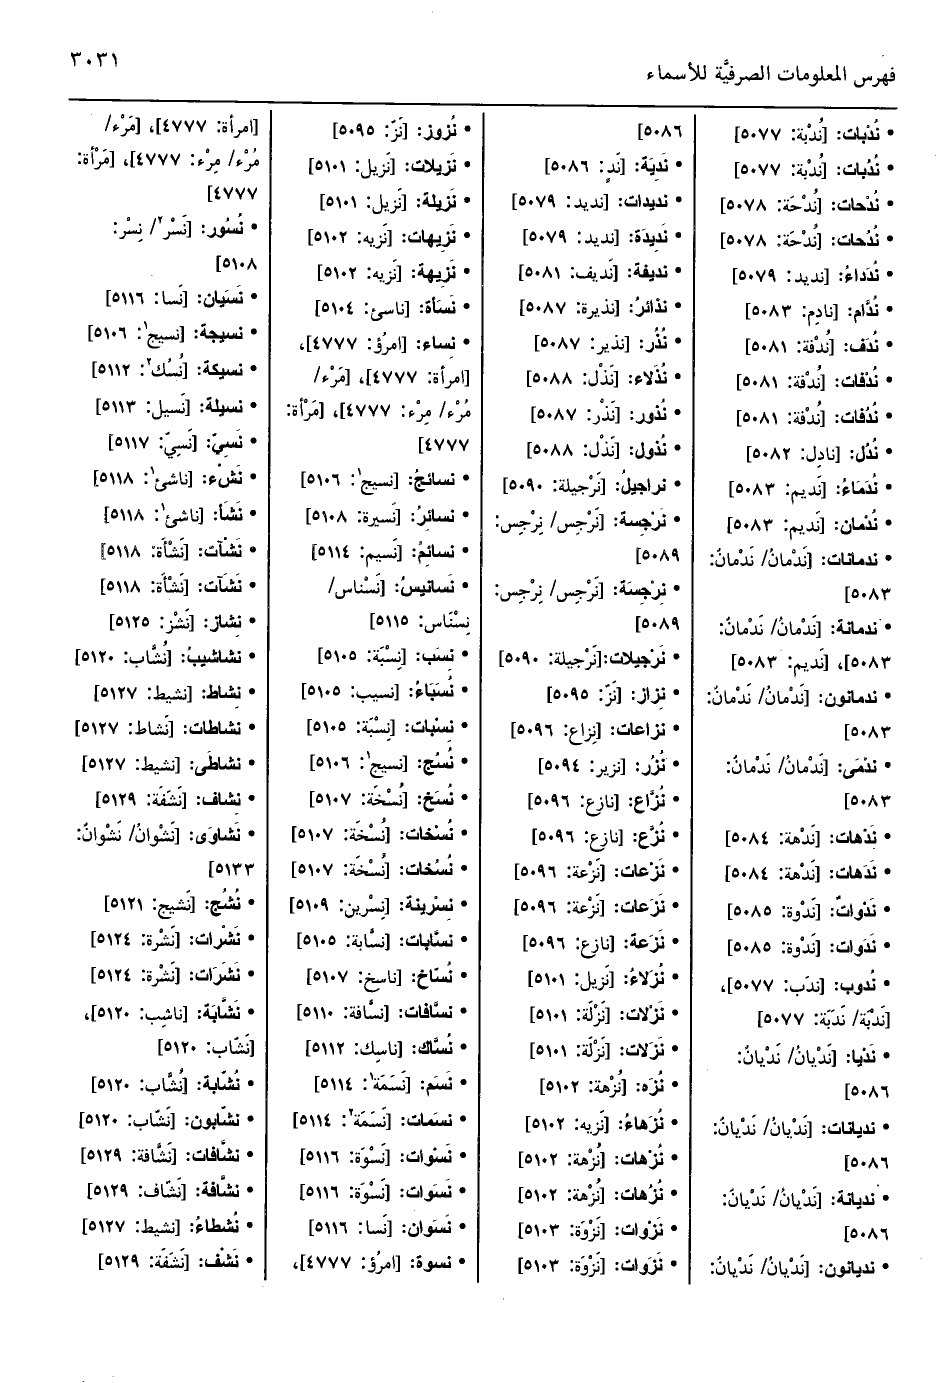 ٣٠٣١
فهرس المعلومات الصرفيَّة للأسماء
• نُدْبات: [نُدْبَة: ٥٠٧٧]
• نُدُبات: [نُدْبَة: ٥٠٧٧]
• نُدْحات: [نُدْحَة: ٥٠٧٨]
• نُدُحات: [نُدْحَة: ٥٠٧٨]
• نُدَداءُ: [نديد: ٥٠٧٩]
• نُدَّام: [نادِم: ٥٠٨٣]
• نُدَف: [نُدْفَة: ٥٠٨١]
• نُدْفات: [نُدْفَة: ٥٠٨١]
• نُدُفات: [نُدْفَة: ٥٠٨١]
• نُدُل: [نادِل: ٥٠٨٢]
• نُدَماءُ: [نَديم: ٥٠٨٣]
• نُدْمان: [نَديم: ٥٠٨٣]
• ندمانات: [نَدْمانُ/ نَدْمانٌ:
٥٠٨٣]
• ندمانة: [نَدْمانُ/ نَدْمانٌ:
٥٠٨٣]، [نَديم: ٥٠٨٣]
• ندمانون: [نَدْمانُ/ نَدْمانٌ:
٥٠٨٣]
• نَدْمَى: [نَدْمانُ/ نَدْمانٌ:
٥٠٨٣]
• نَدْهات: [نَدْهة: ٥٠٨٤]
• نَدَهات: [نَدْهة: ٥٠٨٤]
• نَدْوات: [نَدْوة: ٥٠٨٥]
• نَدَوات: [نَدْوة: ٥٠٨٥]
• نُدوب: [نَدَب: ٥٠٧٧]،
[نَدْبَة/ نَدَبَة: ٥٠٧٧]
• نَدْيا: [نَدْيانُ/ نَدْيانٌ:
٥٠٨٦]
• نديانات: [نَدْيانُ/ نَدْيانٌ:
٥٠٨٦]
• نديانة: [نَدْيانُ/ نَدْيانٌ:
٥٠٨٦]
• نديانون: [نَدْيانُ/ نَدْيانٌ:
٥٠٨٦]
• نَدِيَة: [نَدٍ: ٥٠٨٦]
• نديدات: [نديد: ٥٠٧٩]
• نديدَة: [نديد: ٥٠٧٩]
• نديفة: [نَديف: ٥٠٨١]
• نذائرُ: [نذيرة: ٥٠٨٧]
• نُذُر: [نذير: ٥٠٨٧]
• نُذَلاء: [نَذْل: ٥٠٨٨]
• نُذور: [نَذْر: ٥٠٨٧]
• نُذول: [نَذْل: ٥٠٨٨]
• نراجيلُ: [نَرْجيلة: ٥٠٩٠]
• نَرْجِسة: [نَرْجِس/ نِرْجِس:
٥٠٨٩]
• نِرْجِسَة: [نَرْجِس/ نِرْجِس:
٥٠٨٩]
• نَرْجيلات:[نَرْجيلة: ٥٠٩٠]
• نزاز: [نَزّ: ٥٠٩٥]
• نزاعات: [نِزاع: ٥٠٩٦]
• نُزُر: [نزير: ٥٠٩٤]
• نُزَّاع: [نازع: ٥٠٩٦]
• نُزَّع: [نازع: ٥٠٩٦]
• نَزْعات: [نَزْعة: ٥٠٩٦]
• نَزَعات: [نَزْعة: ٥٠٩٦]
• نَزَعة: [نازع: ٥٠٩٦]
• نُزَلاءُ: [نَزيل: ٥١٠١]
• نَزْلات: [نَزْلَة: ٥١٠١]
• نَزَلات: [نَزْلَة: ٥١٠١]
• نُزَه: [نُزْهة: ٥١٠٢]
• نُزَهاءُ: [نَزيه: ٥١٠٢]
• نُزْهات: [نُزْهة: ٥١٠٢]
• نُزُهات: [نُزْهة: ٥١٠٢]
• نَزْوات: [نَزْوَة: ٥١٠٣]
• نَزَوات: [نَزْوَة: ٥١٠٣]
• نُزوز: [نَزّ: ٥٠٩٥]
• نَزيلات: [نَزيل: ٥١٠١]
• نَزيلة: [نَزيل: ٥١٠١]
• نَزيهات: [نَزيه: ٥١٠٢]
• نَزيهة: [نَزيه: ٥١٠٢]
• نَسَأة: [ناسئ: ٥١٠٤]
• نساء: [امرُؤ: ٤٧٧٧]،
[امرأة: ٤٧٧٧]، [مَرْء/
مُرْء/ مِرْء: ٤٧٧٧]، [مَرْأة:
٤٧٧٧]
• نسائجُ: [نسيج١: ٥١٠٦]
• نسائرُ: [نَسيرة: ٥١٠٨]
• نسائمُ: [نَسيم: ٥١١٤]
• نَسانيسُ: [نَسْناس/
نِسْنَاس: ٥١١٥]
• نِسَب: [نِسْبَة: ٥١٠٥]
• نُسَبَاءُ: [نسيب: ٥١٠٥]
• نسْبات: [نِسْبَة: ٥١٠٥]
• نُسُج: [نسيج١: ٥١٠٦]
• نُسَخ: [نُسْخَة: ٥١٠٧]
• نُسْخات: [نُسْخَة: ٥١٠٧]
• نُسُخات: [نُسْخَة: ٥١٠٧]
• نسْرينة: [نِسْرين: ٥١٠٩]
• نسَّابات: [نسَّابة: ٥١٠٥]
• نُسَّاخ: [ناسخ: ٥١٠٧]
• نسَّافات: [نسَّافة: ٥١١٠]
• نُسَّاك: [ناسِك: ٥١١٢]
• نَسَم: [نَسَمَة١: ٥١١٤]
• نسَمات: [نَسَمَة٢: ٥١١٤]
• نَسْوات: [نَسْوَة: ٥١١٦]
• نَسَوات: [نَسْوَة: ٥١١٦]
• نَسَوان: [نَسا: ٥١١٦]
• نسوة: [امرُؤ: ٤٧٧٧]،
[امرأة: ٤٧٧٧]، [مَرْء/
مُرْء/ مِرْء: ٤٧٧٧]، [مَرْأة:
٤٧٧٧]
• نُسُور: [نَسْر٢/ نِسْر:
٥١٠٨]
• نَسَيان: [نَسا: ٥١١٦]
• نسيجة: [نسيج١: ٥١٠٦]
• نَسيكة: [نُسُك٢: ٥١١٢]
• نسيلة: [نَسيل: ٥١١٣]
• نَسِيّ: [نَسِيّ: ٥١١٧]
• نَشْء: [ناشئ١: ٥١١٨]
• نَشَأ: [ناشئ١: ٥١١٨]
• نَشْآت: [نَشْأة: ٥١١٨]
• نَشَآت: [نَشْأة: ٥١١٨]
• نشاز: [نَشْز: ٥١٢٥]
• نشاشيبُ: [نُشَّاب: ٥١٢٠]
• نشاط: [نشيط: ٥١٢٧]
• نشاطات: [نَشاط: ٥١٢٧]
• نشاطَى: [نشيط: ٥١٢٧]
• نشاف: [نَشَفَة: ٥١٢٩]
• نشاوَى: [نَشْوانُ/ نَشْوانٌ:
٥١٣٣]
• نُشُج: [نَشيج: ٥١٢١]
• نَشْرات: [نَشْرة: ٥١٢٤]
• نَشَرَات: [نَشْرة: ٥١٢٤]
• نَشَّابَة: [ناشِب: ٥١٢٠]،
[نَشّاب: ٥١٢٠]
• نُشّابة: [نُشَّاب: ٥١٢٠]
• نشّابون: [نَشّاب: ٥١٢٠]
• نشَّافات: [نَشَّافة: ٥١٢٩]
• نشَّافة: [نَشّاف: ٥١٢٩]
• نُشطاءُ: [نشيط: ٥١٢٧]
• نَشْف: [نَشَفَة: ٥١٢٩]